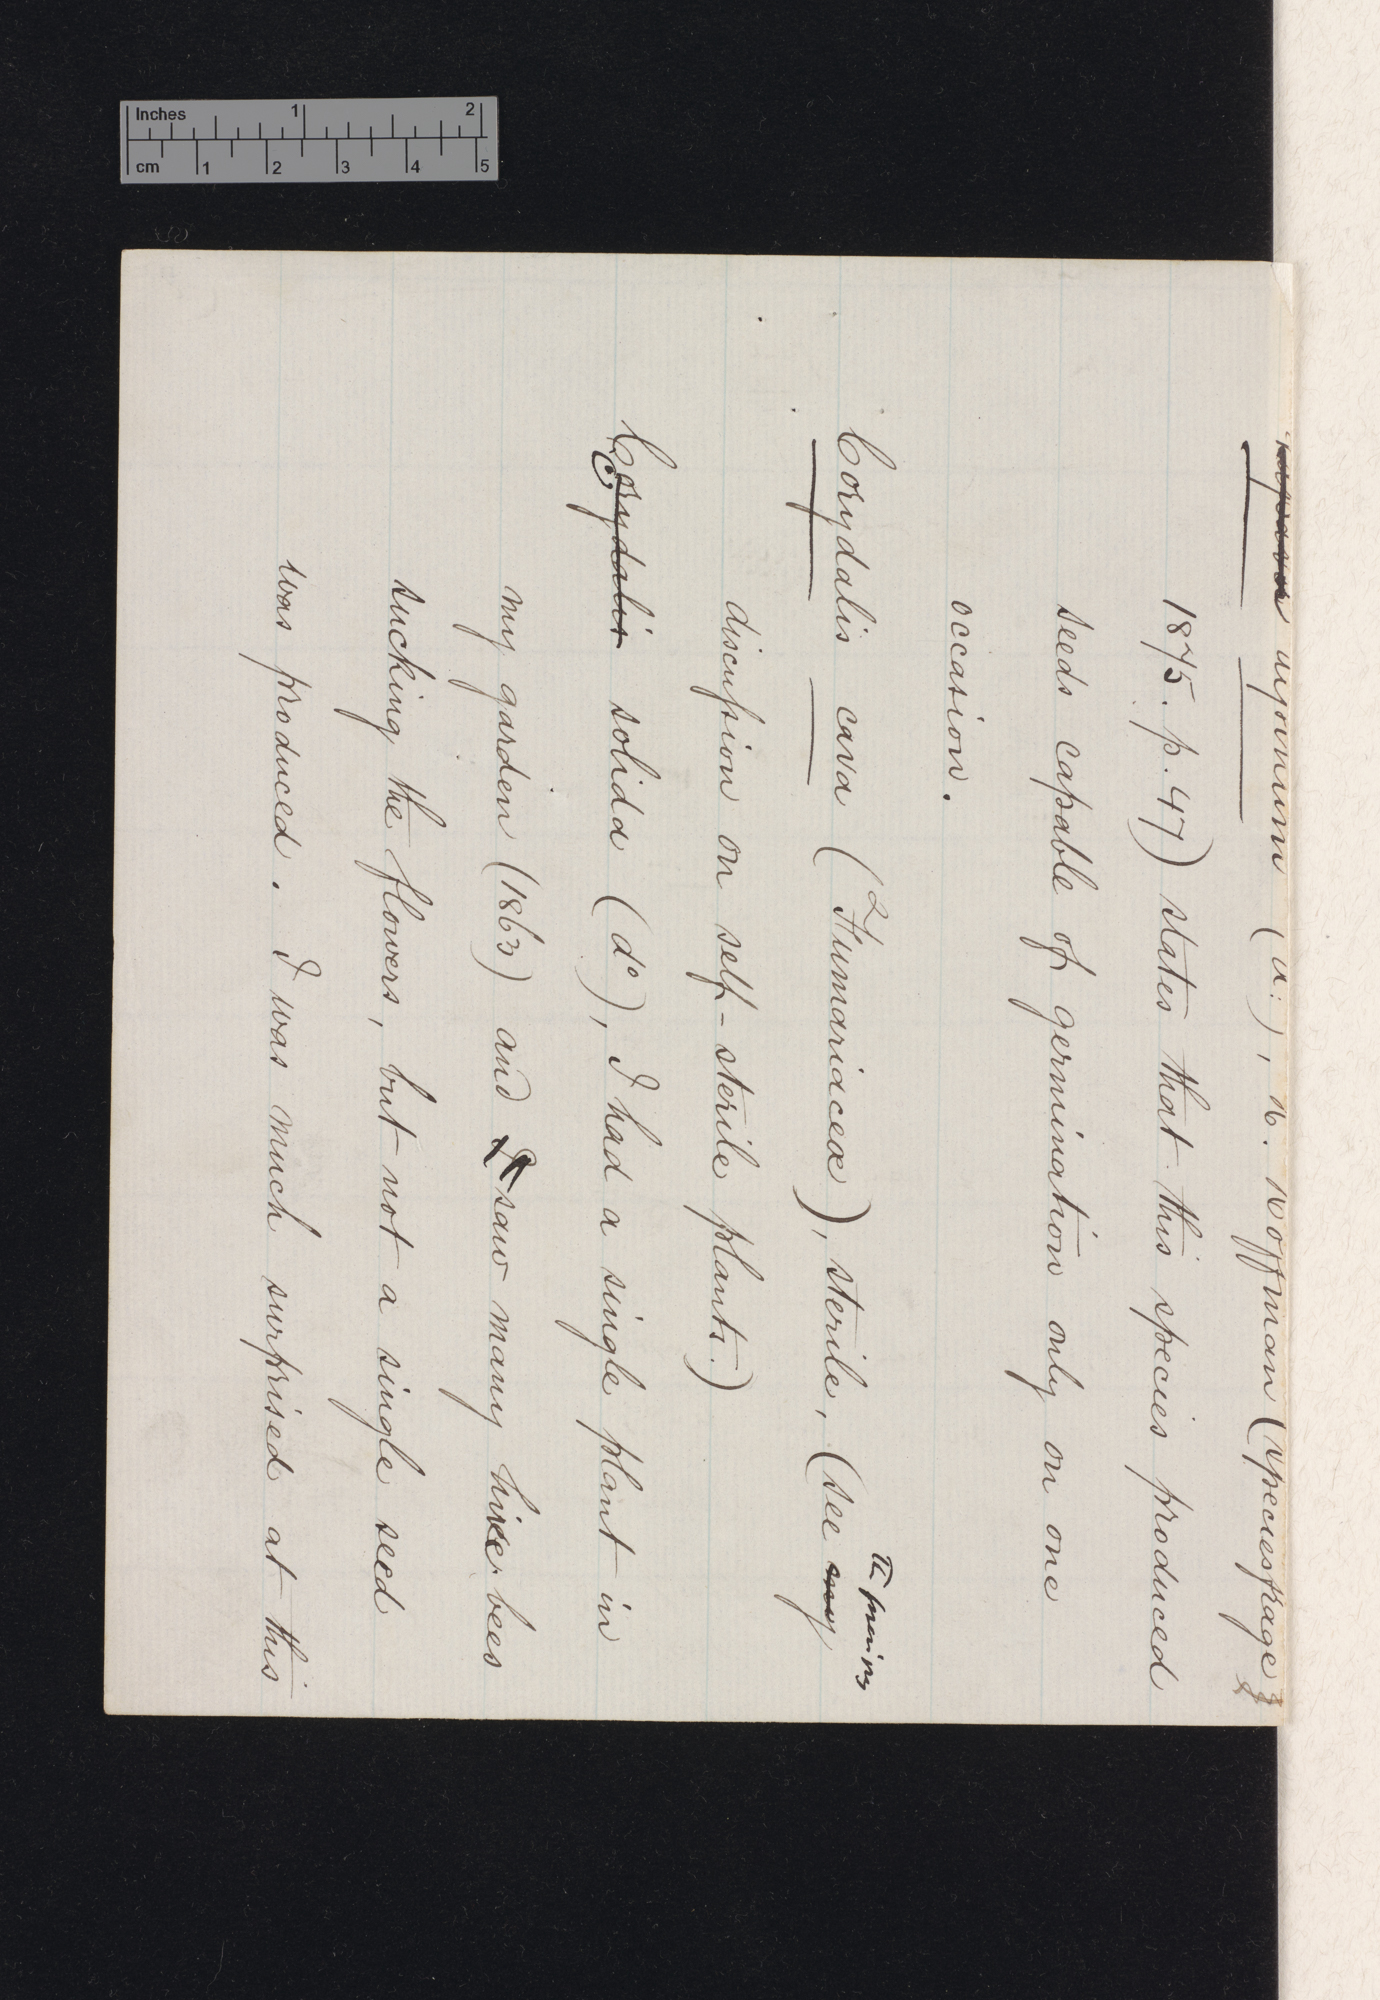 Inches 1 2
cm 1 2 3 4 5
alpinum (d:), H. Hoffman (Speciesfrage
1875. p. 47) states that this species produced
seeds capable of germination only on one
occasion.
the previous
Corydalis cava (2 Fumariaceæ), sterile, (see my
discussion on self-sterile plants.)
Corydalis C. solida (do), I had a single plant in
my garden (1863) and saw many hive-bees
sucking the flowers, but not a single seed
was produced. I was much surprised at this